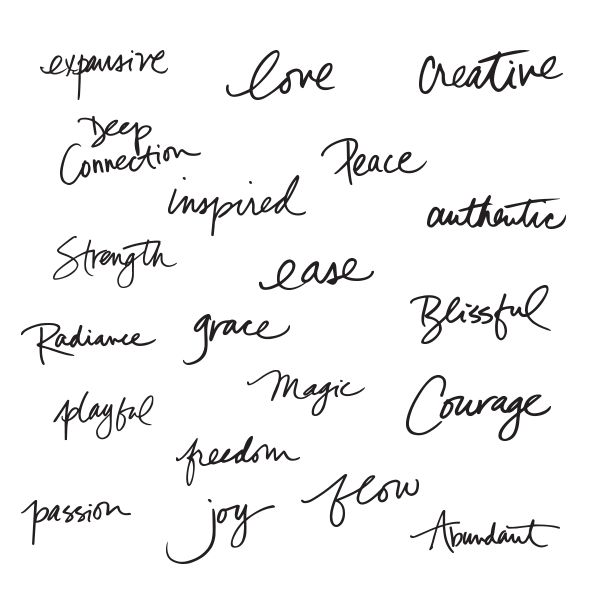 expansive
love
Creative
Deep
Connection
Peace
inspired
authentic
Strength
ease
Blissful
Radiance
grace
Magic
Courage
playful
freedom
flow
passion
joy
Abundant